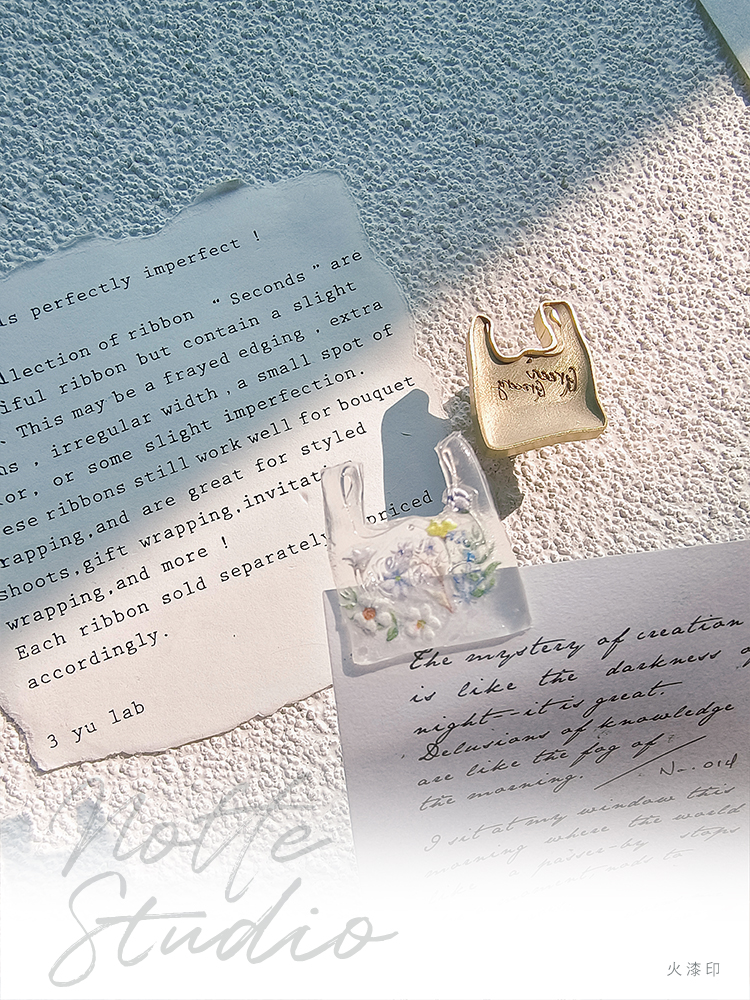 is perfectly imperfect !
llection of ribbon “ Seconds ” are
iful ribbon but contain a slight
This may be a frayed edging , extra
ns , irregular width , a small spot of
or, or some slight imperfection.
ese ribbons still work well for bouquet
rapping,and are great for styled
shoots,gift wrapping,invitat
wrapping,and more !
Each ribbon sold separately priced
accordingly.
3 yu lab
Green
The mystery of creation
is like the darkness
night--it is great.
Delusions of knowledge
are like the fog of
the morning.
No. 014
I sit at my window this
morning where the world
a passer-by stops
nods to
Notte
Studio
火漆印